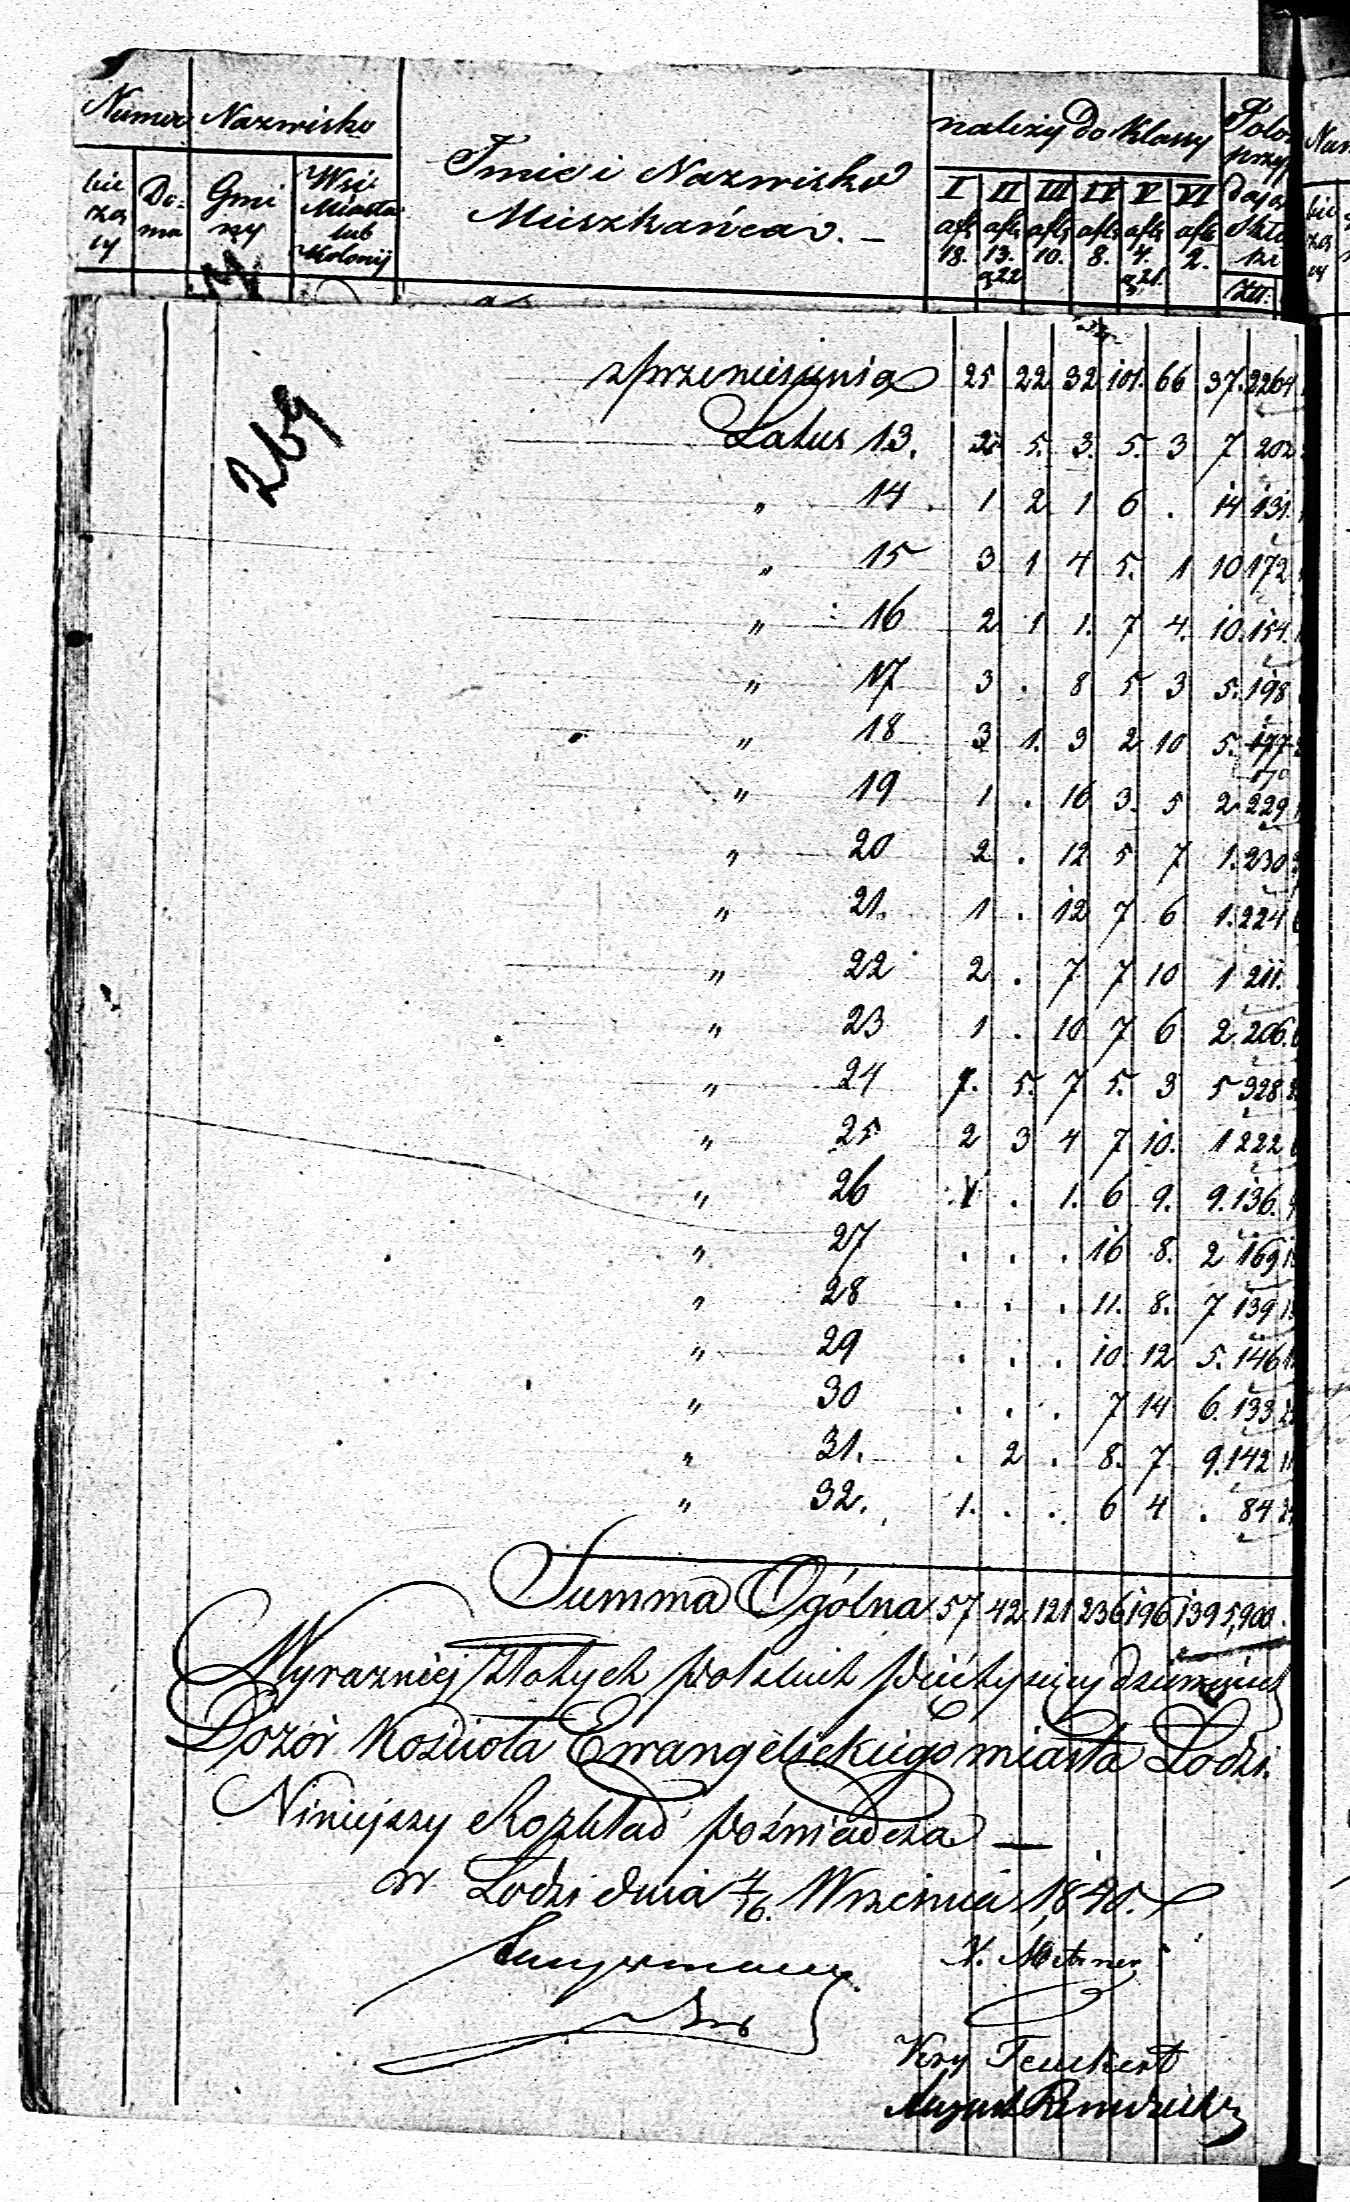 Numer Nazwisko
Imie i Nazwisko
Mieszkańca. –
należy do Klassy
bie
żą
cy
Do=
mu
Gmi
ny
Wsi
Miasta
lub
Kolonij
I II III IV V VI
18. 13. 10. 8. 4. 2.
Złt.
269
z przeniesienia 25 22 32 101. 66 37. 2264
Latus 13. 2 5. 3. 5. 3 7 202
" 14 1 2 1 6 . 14 131.
" 15 3 1 4 5. 1 10 172
" 16 2 1 1. 7 4. 10. 154.
" 17 3 . 8 5 3 5. 198
" 18 3 1. 3 2 10 5. 177
" 19 1 . 16 3. 5 2. 229
" 20 2 . 12 5 7 1. 230
" 21. 1 . 12 7 6 1. 224
" 22 2 . 7 7 10 1 211.
" 23 1 . 10 7 6 2. 206.
" 24 7. 5. 7 5. 3 5 328
" 25 2 3 4 7 10. 1 222
" 26 1 . 1. 6 9. 9. 136.
" 27 . . . 16 8. 2 169
" 28 . . . 11. 8. 7 139
" 29 . . . 10. 12 5. 146
" 30 . . . 7 14 6. 133
" 31. . 2 . 8. 7 9. 142
" 32. 1. . . 6 4 . 84
Summa Ogólna 57 42 121 236 196 139 5,900.
Wyrazniej Złotych polskich pięć tysięcy dziewięćset
Dozór Kościoła Ewangelickiego miasta Łodzi.
Niniejszy Rozkład poświadcza —
w Łodzi dnia 4/6. Września 1840.
Kry Teuckert
August